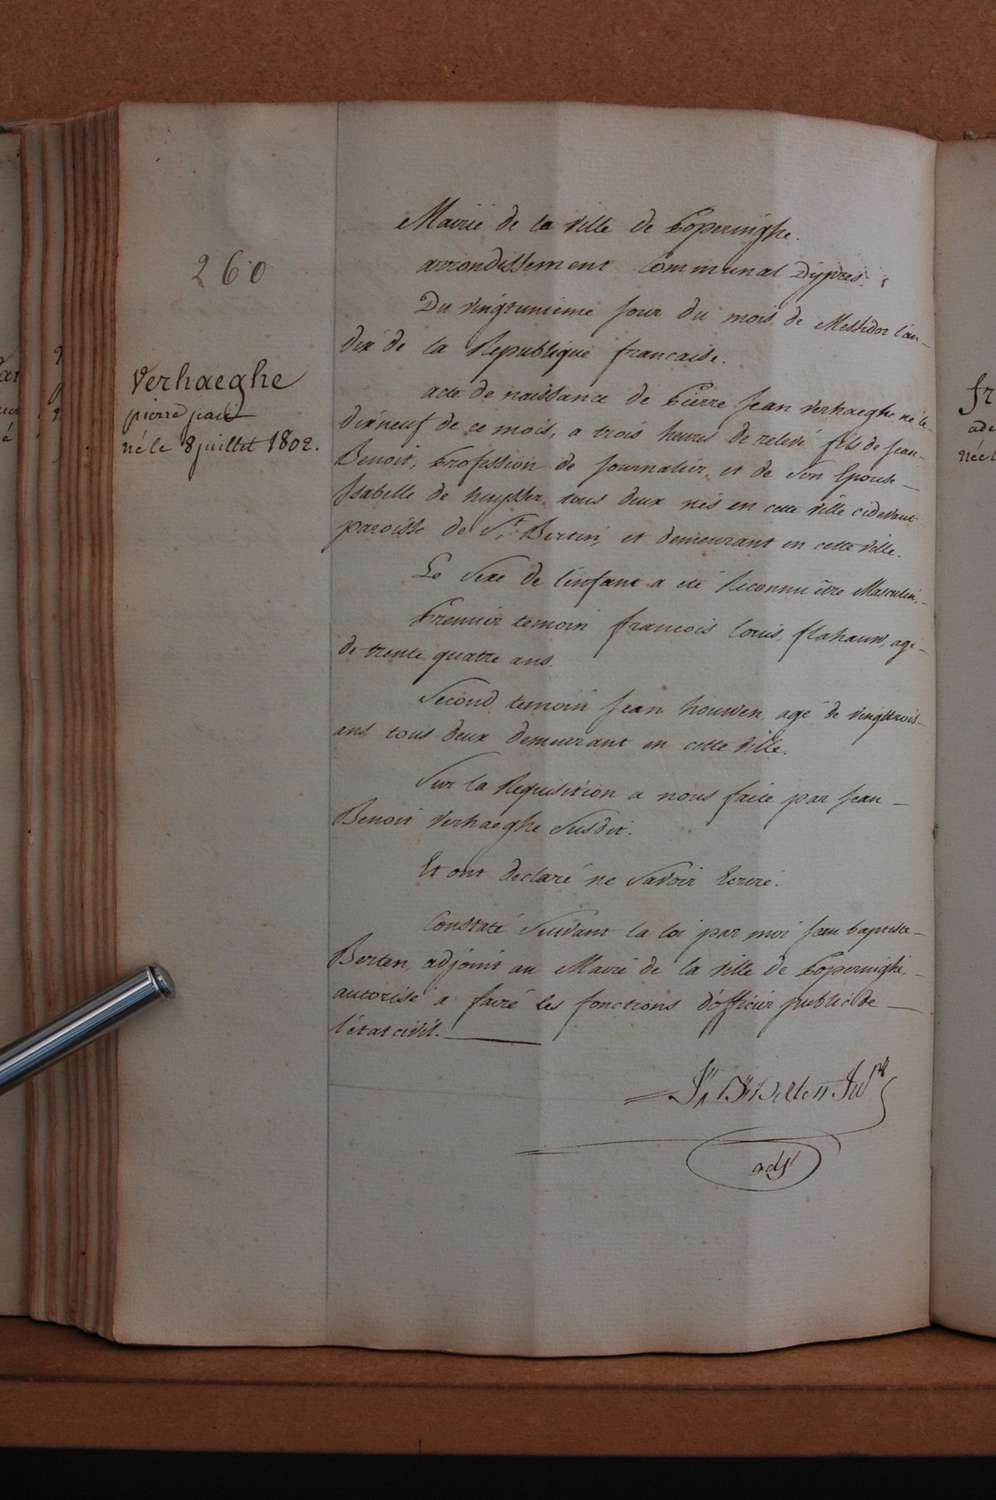 260
Verhaeghe
pierre jean
né le 8 juillet 1802.
Mairie de la ville de Poperinghe.
arrondissement Communal D'ypres.
Du vingtunieme jour du mois de Messidor l'an
dix de la Republique francaise.
acte de naissance de Pierre Jean Verhaeghe né le
dixneuf de ce mois, a trois heures de relevé fils de Jean
Benoit, Profession de Journalier, et de Son Epouse
Isabelle de huysser tous deux nés en cette ville cidevant
paroisse de St. Bertin, et demeurant en cette ville.
Le Sexe de l'enfant a eté Reconnu être Masculin,
Premier temoin francois louis flahaum, agé
de trente quatre ans.
Second temoin Jean houwen, agé de vingttrois
ans tous deux demeurant en cette ville.
Sur la Requisition a nous faite par Jean
Benoit Verhaeghe Susdit.
Et ont declaré ne Savoir Ecrire.
Constaté Suivant la loi par moi Jean baptiste
Berten, adjoint au Mairie de la ville de Poperinghe
autorisé a faire les fonctions d'officier public de
l'état civil.
Jn Bte Berten
adjt